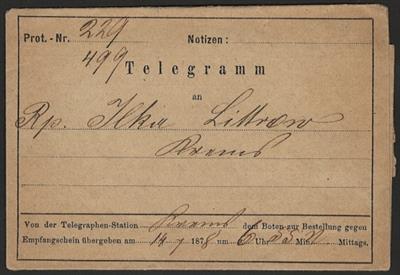 Prot. - Nr. 229 Notizen:
499
Telegramm
an
Rp. Ilka Littrow
Krems
Von der Telegraphen-Station Krems dem Boten zur Bestellung gegen
Empfangschein übergeben am 14 7 1878 um 6 Uhr Min. Mittags.